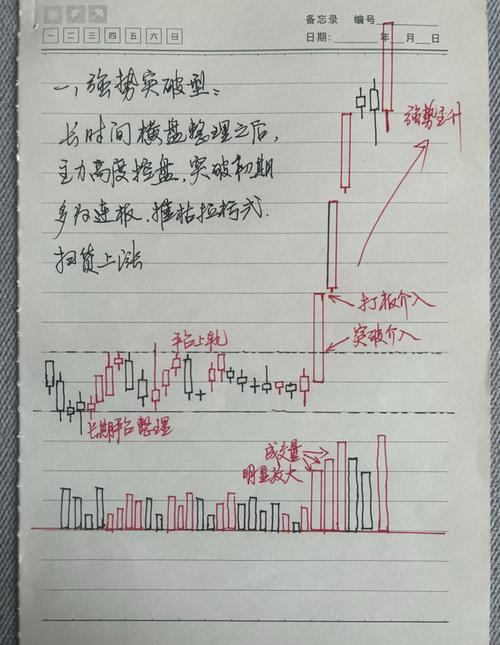 备忘录 编号
一 二 三 四 五 六 日
日期: 年 月 日
一,强势突破型:
长时间横盘整理之后,
主力高度控盘,突破初期
多为连板,推枯拉朽式.
扫货上涨
强势主升
打板介入
突破介入
平台上轨
长期平台整理
成交量
明显放大